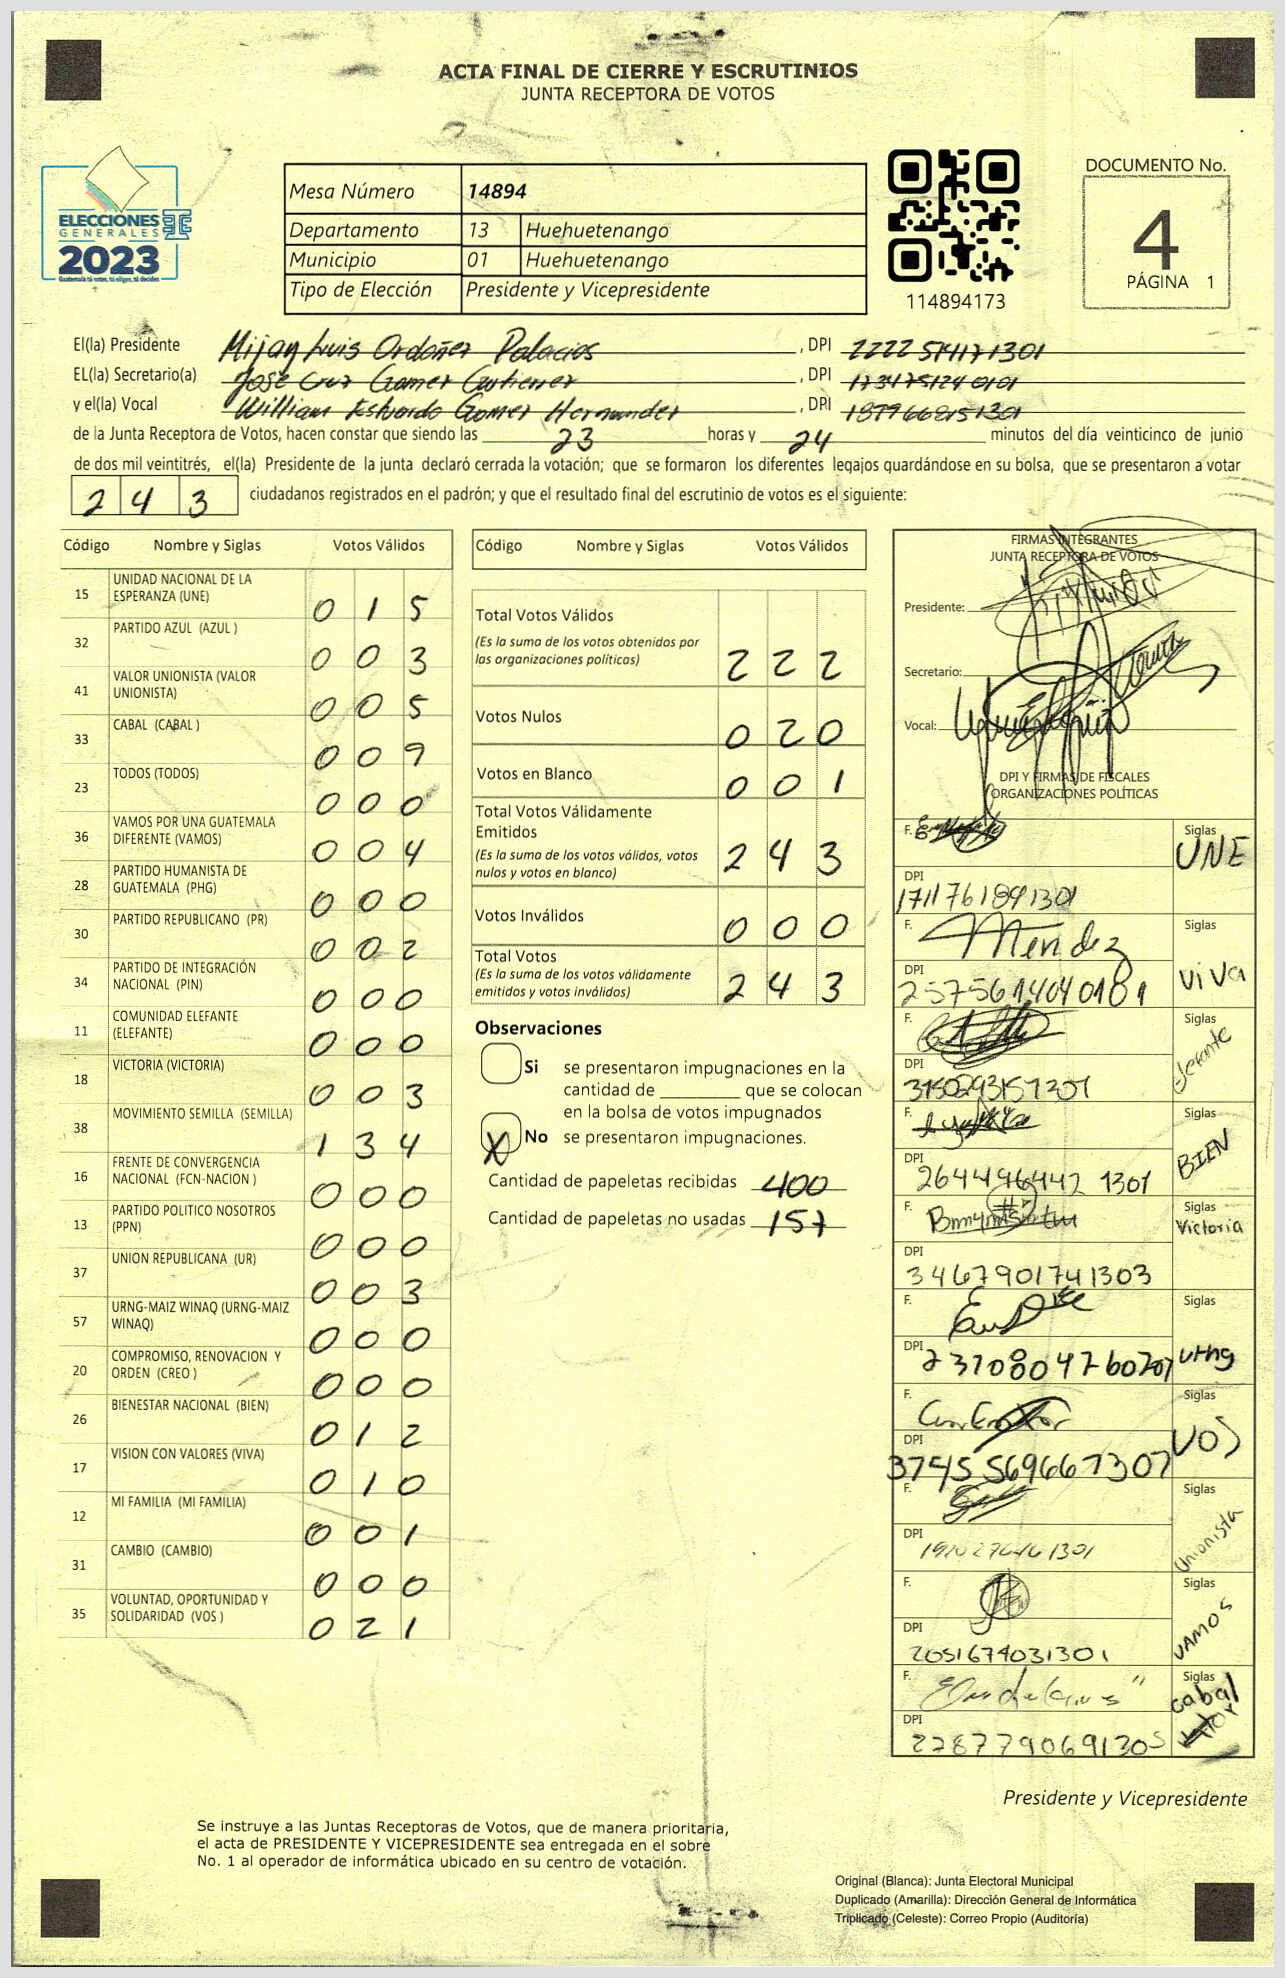 ACTA FINAL DE CIERRE Y ESCRUTINIOS
JUNTA RECEPTORA DE VOTOS
ELECCIONES
GENERALES
2023
Guatemala tú votas, tú eliges, tú decides
Mesa Número 14894
Departamento 13 Huehuetenango
Municipio 01 Huehuetenango
Tipo de Elección Presidente y Vicepresidente
114894173
DOCUMENTO No.
4
PÁGINA 1
El(la) Presidente Luis Ordoñez Palacios, DPI
EL(la) Secretario(a) José Cruz Gomez Gutierrez, DPI
y el(la) Vocal William Estuardo Gomez Hernandez, DPI
de la Junta Receptora de Votos, hacen constar que siendo las 23 horas y 24 minutos del día veinticinco de junio
de dos mil veintitrés, el(la) Presidente de la junta declaró cerrada la votación; que se formaron los diferentes legajos guardándose en su bolsa, que se presentaron a votar
243 ciudadanos registrados en el padrón; y que el resultado final del escrutinio de votos es el siguiente:
Código Nombre y Siglas Votos Válidos
15 UNIDAD NACIONAL DE LA
ESPERANZA (UNE) 015
32 PARTIDO AZUL (AZUL ) 003
41 VALOR UNIONISTA (VALOR
UNIONISTA) 005
33 CABAL (CABAL ) 009
23 TODOS (TODOS) 000
36 VAMOS POR UNA GUATEMALA
DIFERENTE (VAMOS) 004
28 PARTIDO HUMANISTA DE
GUATEMALA (PHG) 000
30 PARTIDO REPUBLICANO (PR) 002
34 PARTIDO DE INTEGRACIÓN
NACIONAL (PIN) 000
11 COMUNIDAD ELEFANTE
(ELEFANTE) 000
18 VICTORIA (VICTORIA) 003
38 MOVIMIENTO SEMILLA (SEMILLA) 134
16 FRENTE DE CONVERGENCIA
NACIONAL (FCN-NACION ) 000
13 PARTIDO POLITICO NOSOTROS
(PPN) 000
37 UNION REPUBLICANA (UR) 003
57 URNG-MAIZ WINAQ (URNG-MAIZ
WINAQ) 000
20 COMPROMISO, RENOVACION Y
ORDEN (CREO ) 000
26 BIENESTAR NACIONAL (BIEN) 012
17 VISION CON VALORES (VIVA) 010
12 MI FAMILIA (MI FAMILIA) 001
31 CAMBIO (CAMBIO) 000
35 VOLUNTAD, OPORTUNIDAD Y
SOLIDARIDAD (VOS ) 021
Código Nombre y Siglas Votos Válidos
Total Votos Válidos
(Es la suma de los votos obtenidos por
las organizaciones políticas) 222
Votos Nulos 020
Votos en Blanco 001
Total Votos Válidamente
Emitidos
(Es la suma de los votos válidos, votos
nulos y votos en blanco) 243
Votos Inválidos 000
Total Votos
(Es la suma de los votos válidamente
emitidos y votos inválidos) 243
Observaciones
Si se presentaron impugnaciones en la
cantidad de ________ que se colocan
en la bolsa de votos impugnados
X No se presentaron impugnaciones.
Cantidad de papeletas recibidas 400
Cantidad de papeletas no usadas 157
FIRMAS INTEGRANTES
JUNTA RECEPTORA DE VOTOS
Presidente:
Secretario:
Vocal:
DPI Y FIRMAS DE FISCALES
ORGANIZACIONES POLÍTICAS
F. Siglas
UNE
DPI
F. Mendez Siglas
VIVA
DPI
F. Siglas
DPI
F. Siglas
BIEN
DPI
F. Siglas
Victoria
DPI
3467901741303
F. Siglas
urng
DPI
F. Siglas
VOS
DPI
F. Siglas
Unionista
DPI
F. Siglas
VAMOS
DPI
2051674031301
F. Siglas
cabal
DPI
2787790691305
Presidente y Vicepresidente
Se instruye a las Juntas Receptoras de Votos, que de manera prioritaria,
el acta de PRESIDENTE Y VICEPRESIDENTE sea entregada en el sobre
No. 1 al operador de informática ubicado en su centro de votación.
Original (Blanca): Junta Electoral Municipal
Duplicado (Amarilla): Dirección General de Informática
Triplicado (Celeste): Correo Propio (Auditoría)